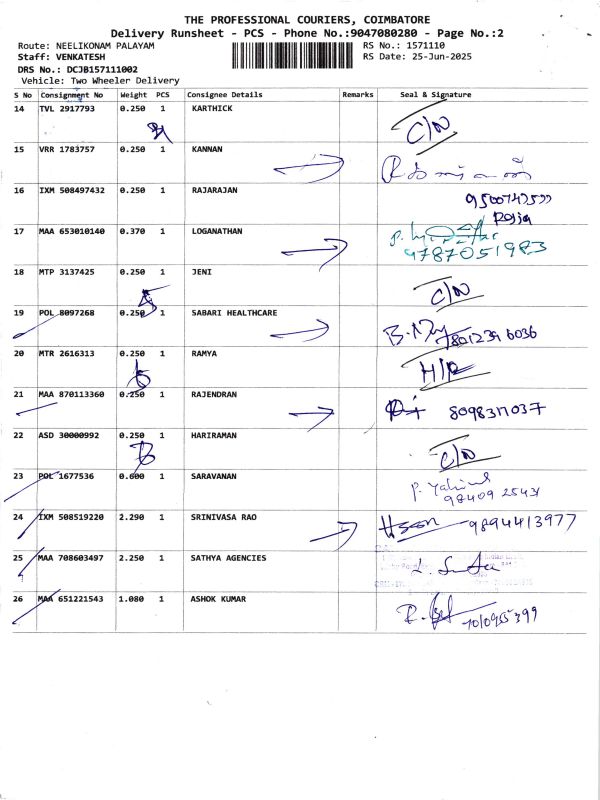 THE PROFESSIONAL COURIERS, COIMBATORE
Delivery Runsheet - PCS - Phone No.:9047080280 - Page No.:2
Route: NEELIKONAM PALAYAM RS No.: 1571110
Staff: VENKATESH RS Date: 25-Jun-2025
DRS No.: DCJB157111002
Vehicle: Two Wheeler Delivery
S No Consignment No Weight PCS Consignee Details Remarks Seal & Signature
14 TVL 2917793 0.250 1 KARTHICK
C/N
15 VRR 1783757 0.250 1 KANNAN
16 IXM 508497432 0.250 1 RAJARAJAN
Raja
17 MAA 653010140 0.370 1 LOGANATHAN
9787051983
18 MTP 3137425 0.250 1 JENI
C/N
19 POL 8097268 0.250 1 SABARI HEALTHCARE
20 MTR 2616313 0.250 1 RAMYA
21 MAA 870113360 0.250 1 RAJENDRAN
22 ASD 30000992 0.250 1 HARIRAMAN
C/N
23 POL 1677536 0.600 1 SARAVANAN
24 IXM 508519220 2.290 1 SRINIVASA RAO
9894413977
25 MAA 708603497 2.250 1 SATHYA AGENCIES
26 MAA 651221543 1.080 1 ASHOK KUMAR